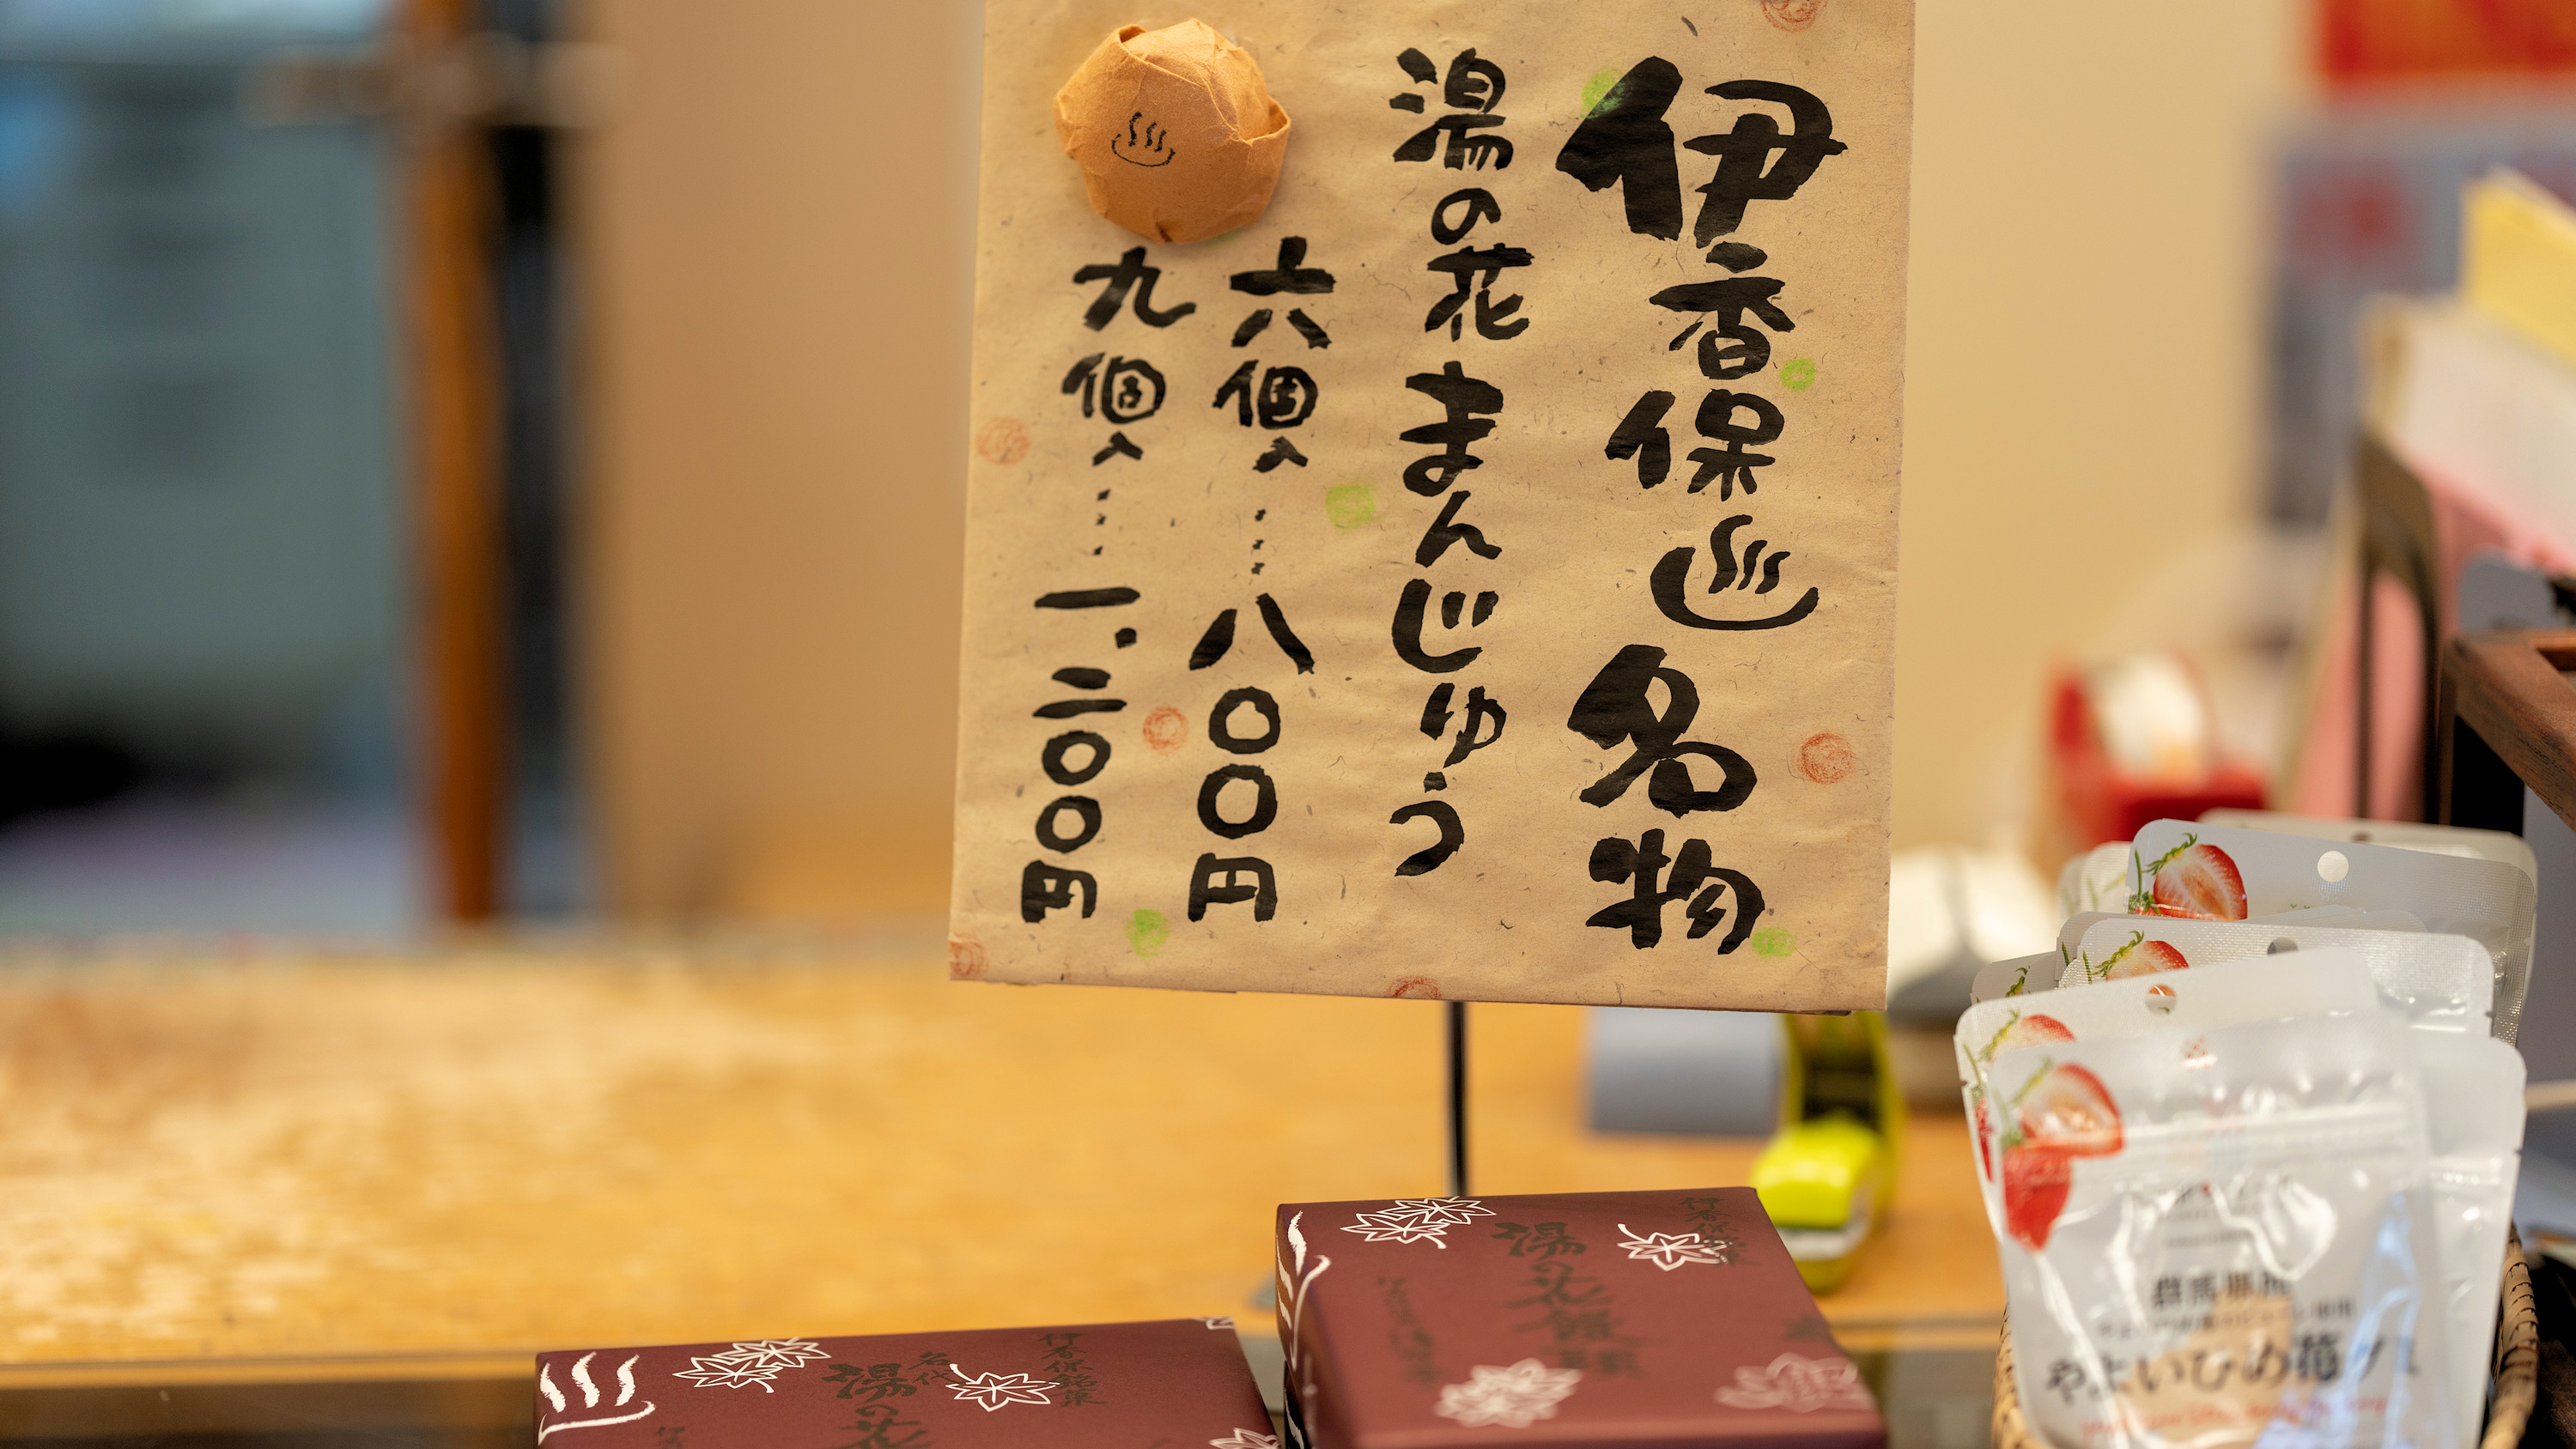 伊香保♨名物
湯の花まんじゅう
六個入……八〇〇円
九個入……一、二〇〇円
伊香保銘菓
名代
湯の花
湯の花饅頭
群馬県産
やよいひめ苺グミ